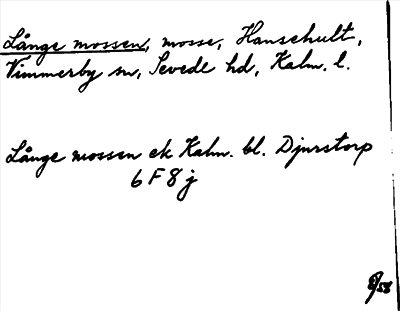 Långe mossen, mosse, Hanschult,
Vimmerby sn, Sevede hd, Kalm. l.
Långe mossen ek Kalm. bl. Djurstorp
6 F 8 j
8/58